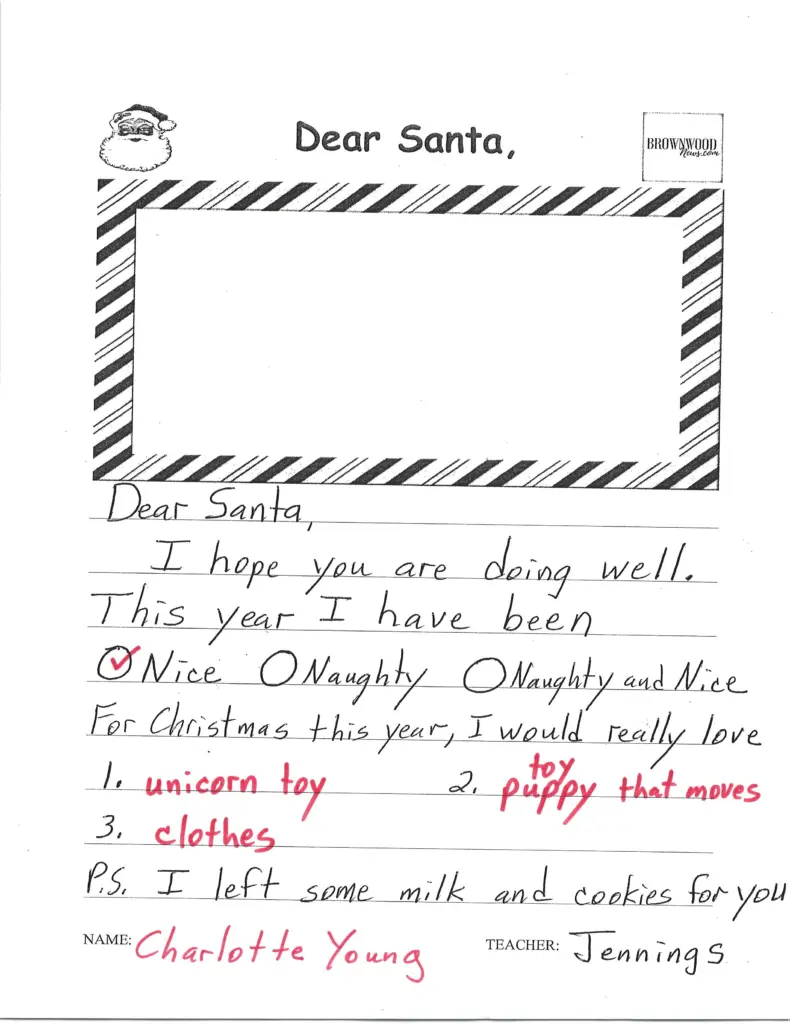 Dear Santa,
BROWNWOOD
News.com
Dear Santa,
I hope you are doing well.
This year I have been
Nice Naughty Naughty and Nice
For Christmas this year, I would really love
1. unicorn toy 2. toy puppy that moves
3. clothes
P.S. I left some milk and cookies for you
NAME: Charlotte Young TEACHER: Jennings